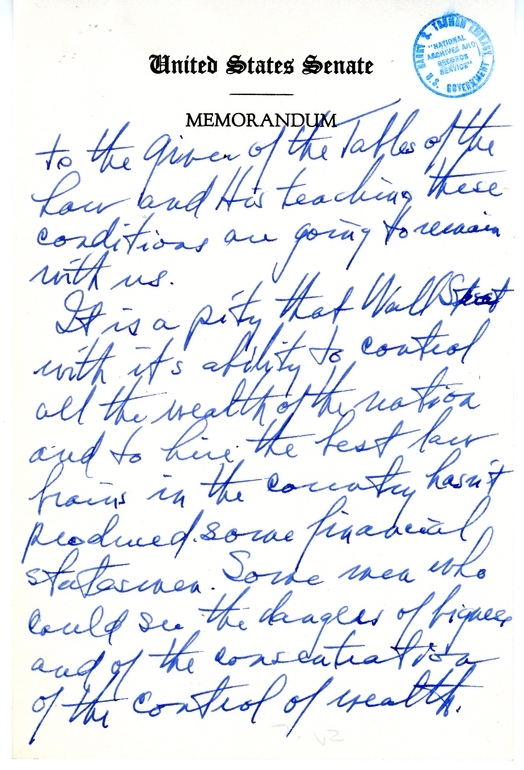 United States Senate
MEMORANDUM
HARRY S. TRUMAN LIBRARY
"NATIONAL
ARCHIVES AND
RECORDS
SERVICE"
U.S. GOVERNMENT
to the Giver of the Tables of the
Law and His teaching these
conditions are going to remain
with us.
It is a pity that Wall Street
with it's ability to control
all the wealth of the nation
and to hire the best law
brains in the country hasn't
produced some financial
statesmen. Some men who
could see the dangers of bigness
and of the concentration
of the control of wealth.